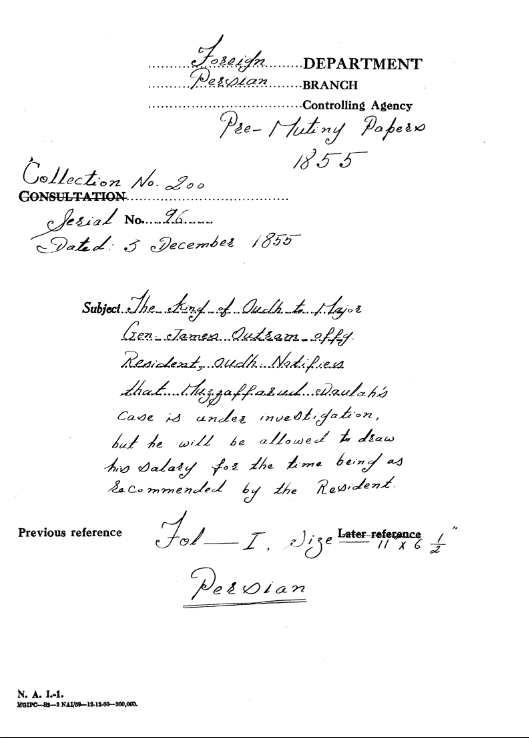 Foreign DEPARTMENT
Persian BRANCH
Controlling Agency
Pre-Mutiny Papers
1855
Collection No. 200
CONSULTATION
Serial No. 96
Dated: 5 December 1855
Subject The King of Oudh to Major
Gen. James Outram offg.
Resident, Oudh Notifies
that Muzzaffarud Daulah's
case is under investigation,
but he will be allowed to draw
his salary for the time being as
recommended by the Resident.
Previous reference Fol — I. Size Later reference 11 x 6 1/2"
Persian
N. A. I.-1.
MGIPC—S2—3 NAI/59—12-12-60—200,000.